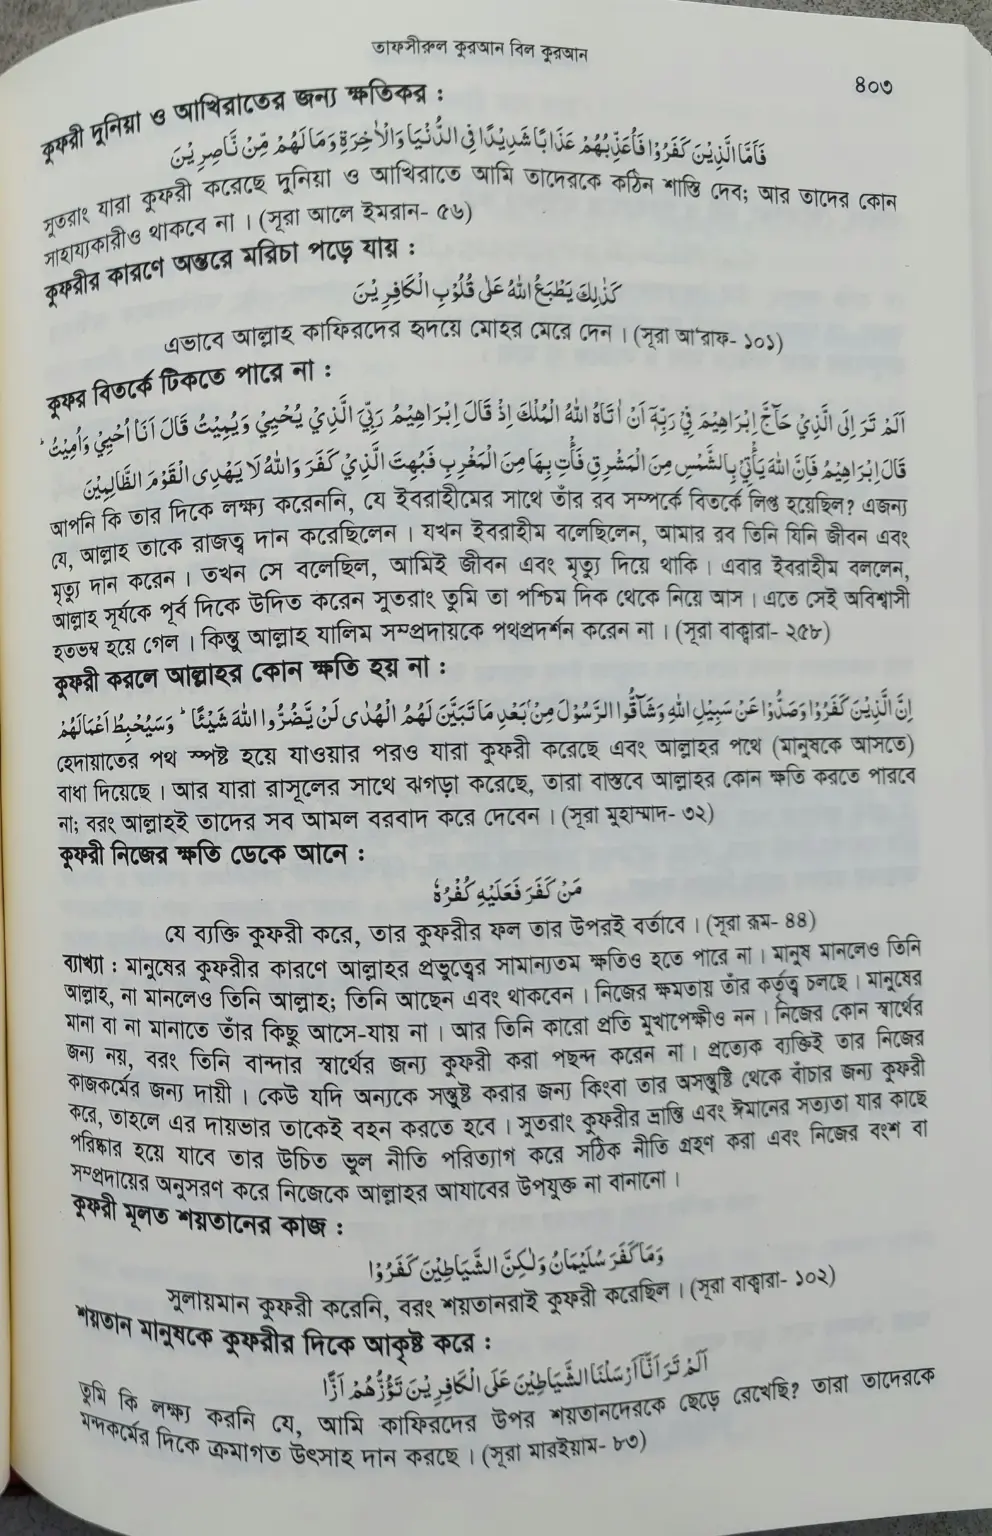 তাফসীরুল কুরআন বিল কুরআন
৪০৩
কুফরী দুনিয়া ও আখিরাতের জন্য ক্ষতিকর :
فَاَمَّا الَّذِيْنَ كَفَرُوْا فَاُعَذِّبُهُمْ عَذَابًا شَدِيْدًا فِى الدُّنْيَا وَالْاٰخِرَةِ وَمَا لَهُمْ مِّنْ نَّاصِرِيْنَ
সুতরাং যারা কুফরী করেছে দুনিয়া ও আখিরাতে আমি তাদেরকে কঠিন শাস্তি দেব; আর তাদের কোন
সাহায্যকারীও থাকবে না । (সূরা আলে ইমরান- ৫৬)
কুফরীর কারণে অন্তরে মরিচা পড়ে যায় :
كَذٰلِكَ يَطْبَعُ اللهُ عَلٰى قُلُوْبِ الْكَافِرِيْنَ
এভাবে আল্লাহ কাফিরদের হৃদয়ে মোহর মেরে দেন । (সূরা আ'রাফ- ১০১)
কুফর বিতর্কে টিকতে পারে না :
اَلَمْ تَرَ اِلَى الَّذِيْ حَآجَّ اِبْرَاهِيْمَ فِيْ رَبِّهٖۤ اَنْ اٰتَاهُ اللهُ الْمُلْكَ اِذْ قَالَ اِبْرَاهِيْمُ رَبِّيَ الَّذِيْ يُحْيِيْ وَيُمِيْتُ قَالَ اَنَا اُحْيِيْ وَاُمِيْتُ ؕ
قَالَ اِبْرَاهِيْمُ فَاِنَّ اللهَ يَأْتِيْ بِالشَّمْسِ مِنَ الْمَشْرِقِ فَأْتِ بِهَا مِنَ الْمَغْرِبِ فَبُهِتَ الَّذِيْ كَفَرَ وَاللهُ لَا يَهْدِى الْقَوْمَ الظَّالِمِيْنَ
আপনি কি তার দিকে লক্ষ্য করেননি, যে ইবরাহীমের সাথে তাঁর রব সম্পর্কে বিতর্কে লিপ্ত হয়েছিল? এজন্য
যে, আল্লাহ তাকে রাজত্ব দান করেছিলেন । যখন ইবরাহীম বলেছিলেন, আমার রব তিনি যিনি জীবন এবং
মৃত্যু দান করেন । তখন সে বলেছিল, আমিই জীবন এবং মৃত্যু দিয়ে থাকি । এবার ইবরাহীম বললেন,
আল্লাহ সূর্যকে পূর্ব দিকে উদিত করেন সুতরাং তুমি তা পশ্চিম দিক থেকে নিয়ে আস । এতে সেই অবিশ্বাসী
হতভম্ব হয়ে গেল । কিন্তু আল্লাহ যালিম সম্প্রদায়কে পথপ্রদর্শন করেন না । (সূরা বাক্বারা- ২৫৮)
কুফরী করলে আল্লাহর কোন ক্ষতি হয় না :
اِنَّ الَّذِيْنَ كَفَرُوْا وَصَدُّوْا عَنْ سَبِيْلِ اللهِ وَشَآقُّوا الرَّسُوْلَ مِنْ ۢبَعْدِ مَا تَبَيَّنَ لَهُمُ الْهُدٰى لَنْ يَّضُرُّوا اللهَ شَيْئًا ؕ وَسَيُحْبِطُ اَعْمَالَهُمْ
হেদায়াতের পথ স্পষ্ট হয়ে যাওয়ার পরও যারা কুফরী করেছে এবং আল্লাহর পথে (মানুষকে আসতে)
বাধা দিয়েছে । আর যারা রাসূলের সাথে ঝগড়া করেছে, তারা বাস্তবে আল্লাহর কোন ক্ষতি করতে পারবে
না; বরং আল্লাহই তাদের সব আমল বরবাদ করে দেবেন । (সূরা মুহাম্মাদ- ৩২)
কুফরী নিজের ক্ষতি ডেকে আনে :
مَنْ كَفَرَ فَعَلَيْهِ كُفْرُهٗ
যে ব্যক্তি কুফরী করে, তার কুফরীর ফল তার উপরই বর্তাবে । (সূরা রূম- ৪৪)
ব্যাখ্যা : মানুষের কুফরীর কারণে আল্লাহর প্রভুত্বের সামান্যতম ক্ষতিও হতে পারে না । মানুষ মানলেও তিনি
আল্লাহ, না মানলেও তিনি আল্লাহ; তিনি আছেন এবং থাকবেন । নিজের ক্ষমতায় তাঁর কর্তৃত্ব চলছে । মানুষের
মানা বা না মানাতে তাঁর কিছু আসে-যায় না । আর তিনি কারো প্রতি মুখাপেক্ষীও নন । নিজের কোন স্বার্থের
জন্য নয়, বরং তিনি বান্দার স্বার্থের জন্য কুফরী করা পছন্দ করেন না । প্রত্যেক ব্যক্তিই তার নিজের
কাজকর্মের জন্য দায়ী । কেউ যদি অন্যকে সন্তুষ্ট করার জন্য কিংবা তার অসন্তুষ্টি থেকে বাঁচার জন্য কুফরী
করে, তাহলে এর দায়ভার তাকেই বহন করতে হবে । সুতরাং কুফরীর ভ্রান্তি এবং ঈমানের সত্যতা যার কাছে
পরিষ্কার হয়ে যাবে তার উচিত ভুল নীতি পরিত্যাগ করে সঠিক নীতি গ্রহণ করা এবং নিজের বংশ বা
সম্প্রদায়ের অনুসরণ করে নিজেকে আল্লাহর আযাবের উপযুক্ত না বানানো ।
কুফরী মূলত শয়তানের কাজ :
وَمَا كَفَرَ سُلَيْمَانُ وَلٰكِنَّ الشَّيَاطِيْنَ كَفَرُوْا
সুলায়মান কুফরী করেনি, বরং শয়তানরাই কুফরী করেছিল । (সূরা বাক্বারা- ১০২)
শয়তান মানুষকে কুফরীর দিকে আকৃষ্ট করে :
اَلَمْ تَرَ اَنَّاۤ اَرْسَلْنَا الشَّيَاطِيْنَ عَلَى الْكَافِرِيْنَ تَؤُزُّهُمْ اَزًّا
তুমি কি লক্ষ্য করনি যে, আমি কাফিরদের উপর শয়তানদেরকে ছেড়ে রেখেছি? তারা তাদেরকে
মন্দকর্মের দিকে ক্রমাগত উৎসাহ দান করছে । (সূরা মারইয়াম- ৮৩)